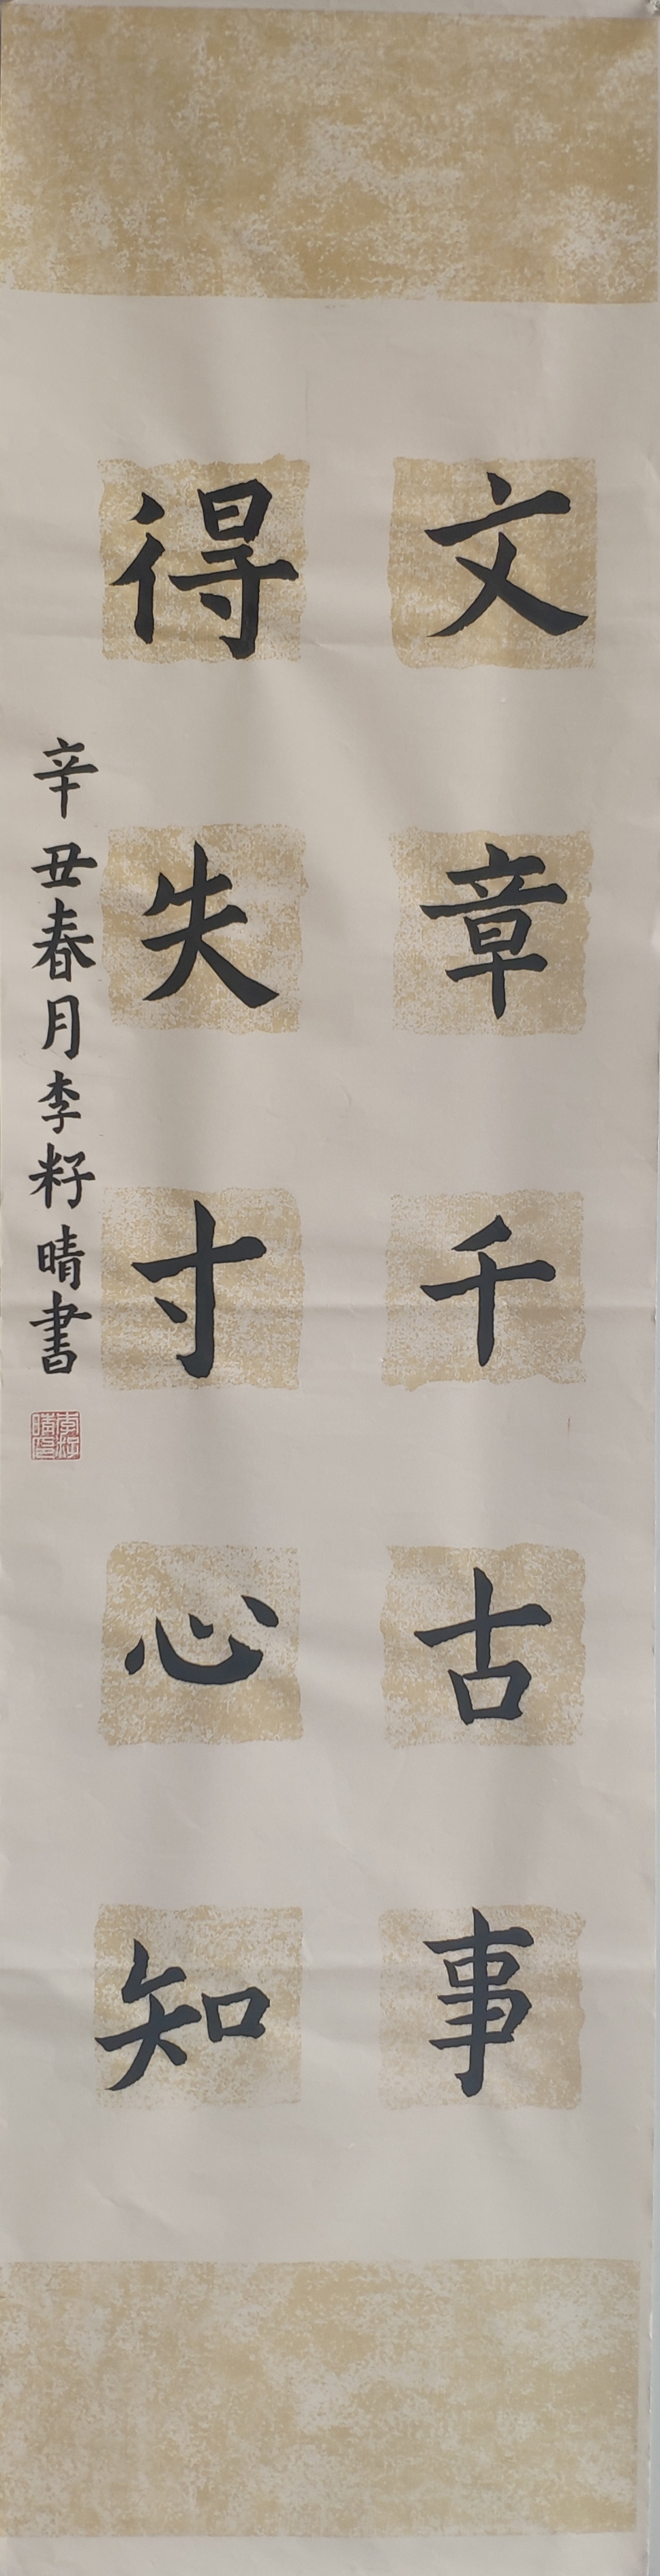 文章千古事
得失寸心知
辛丑春月李籽晴書
李籽晴印